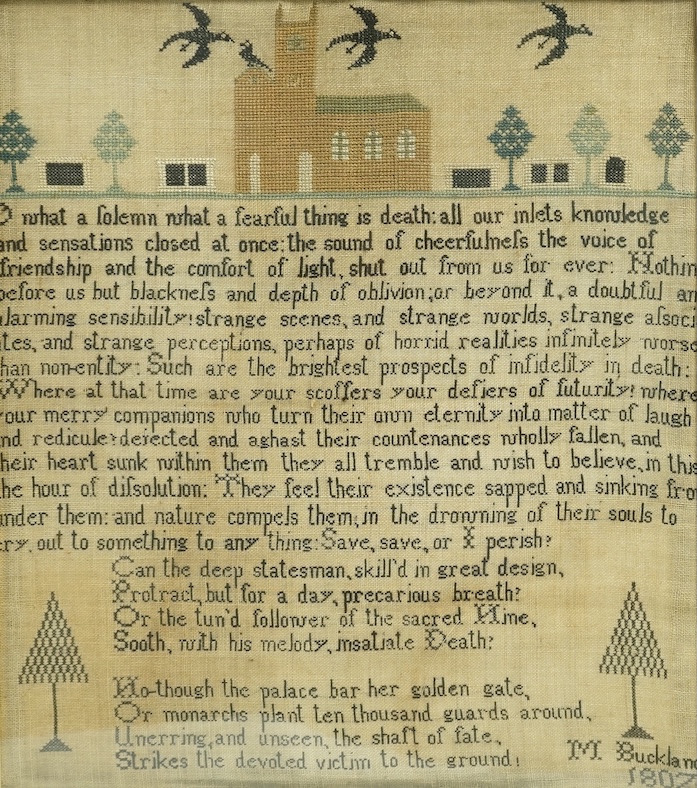 O what a ſolemn what a fearful thing is death: all our inlets knowledge
and sensations closed at once: the sound of cheerfulneſs the voice of
friendship and the comfort of light, shut out from us for ever: Nothin
before us but blackneſs and depth of oblivion; or beyond it, a doubtful an
alarming sensibility! strange scenes, and strange worlds, strange aſsoci
ates, and strange perceptions, perhaps of horrid realities infinitely worse
than non-entity: Such are the brightest prospects of infidelity in death:
Where at that time are your scoffers your defiers of futurity! where
your merry companions who turn their own eternity into matter of laugh
and redicule? dejected and aghast their countenances wholly fallen, and
their heart sunk within them they all tremble and wish to believe, in this
the hour of diſsolution: They feel their existence sapped and sinking fro
under them: and nature compels them; in the drowning of their souls to
cry, out to something to any thing: Save, save, or I perish?
Can the deep statesman, skill'd in great design,
Protract, but for a day, precarious breath?
Or the tun'd follower of the sacred Nine,
Sooth, with his melody, insatiate Death?
No-though the palace bar her golden gate,
Or monarchs plant ten thousand guards around,
Unerring, and unseen, the shaft of fate,
Strikes the devoted victim to the ground!
M Buckland
1807